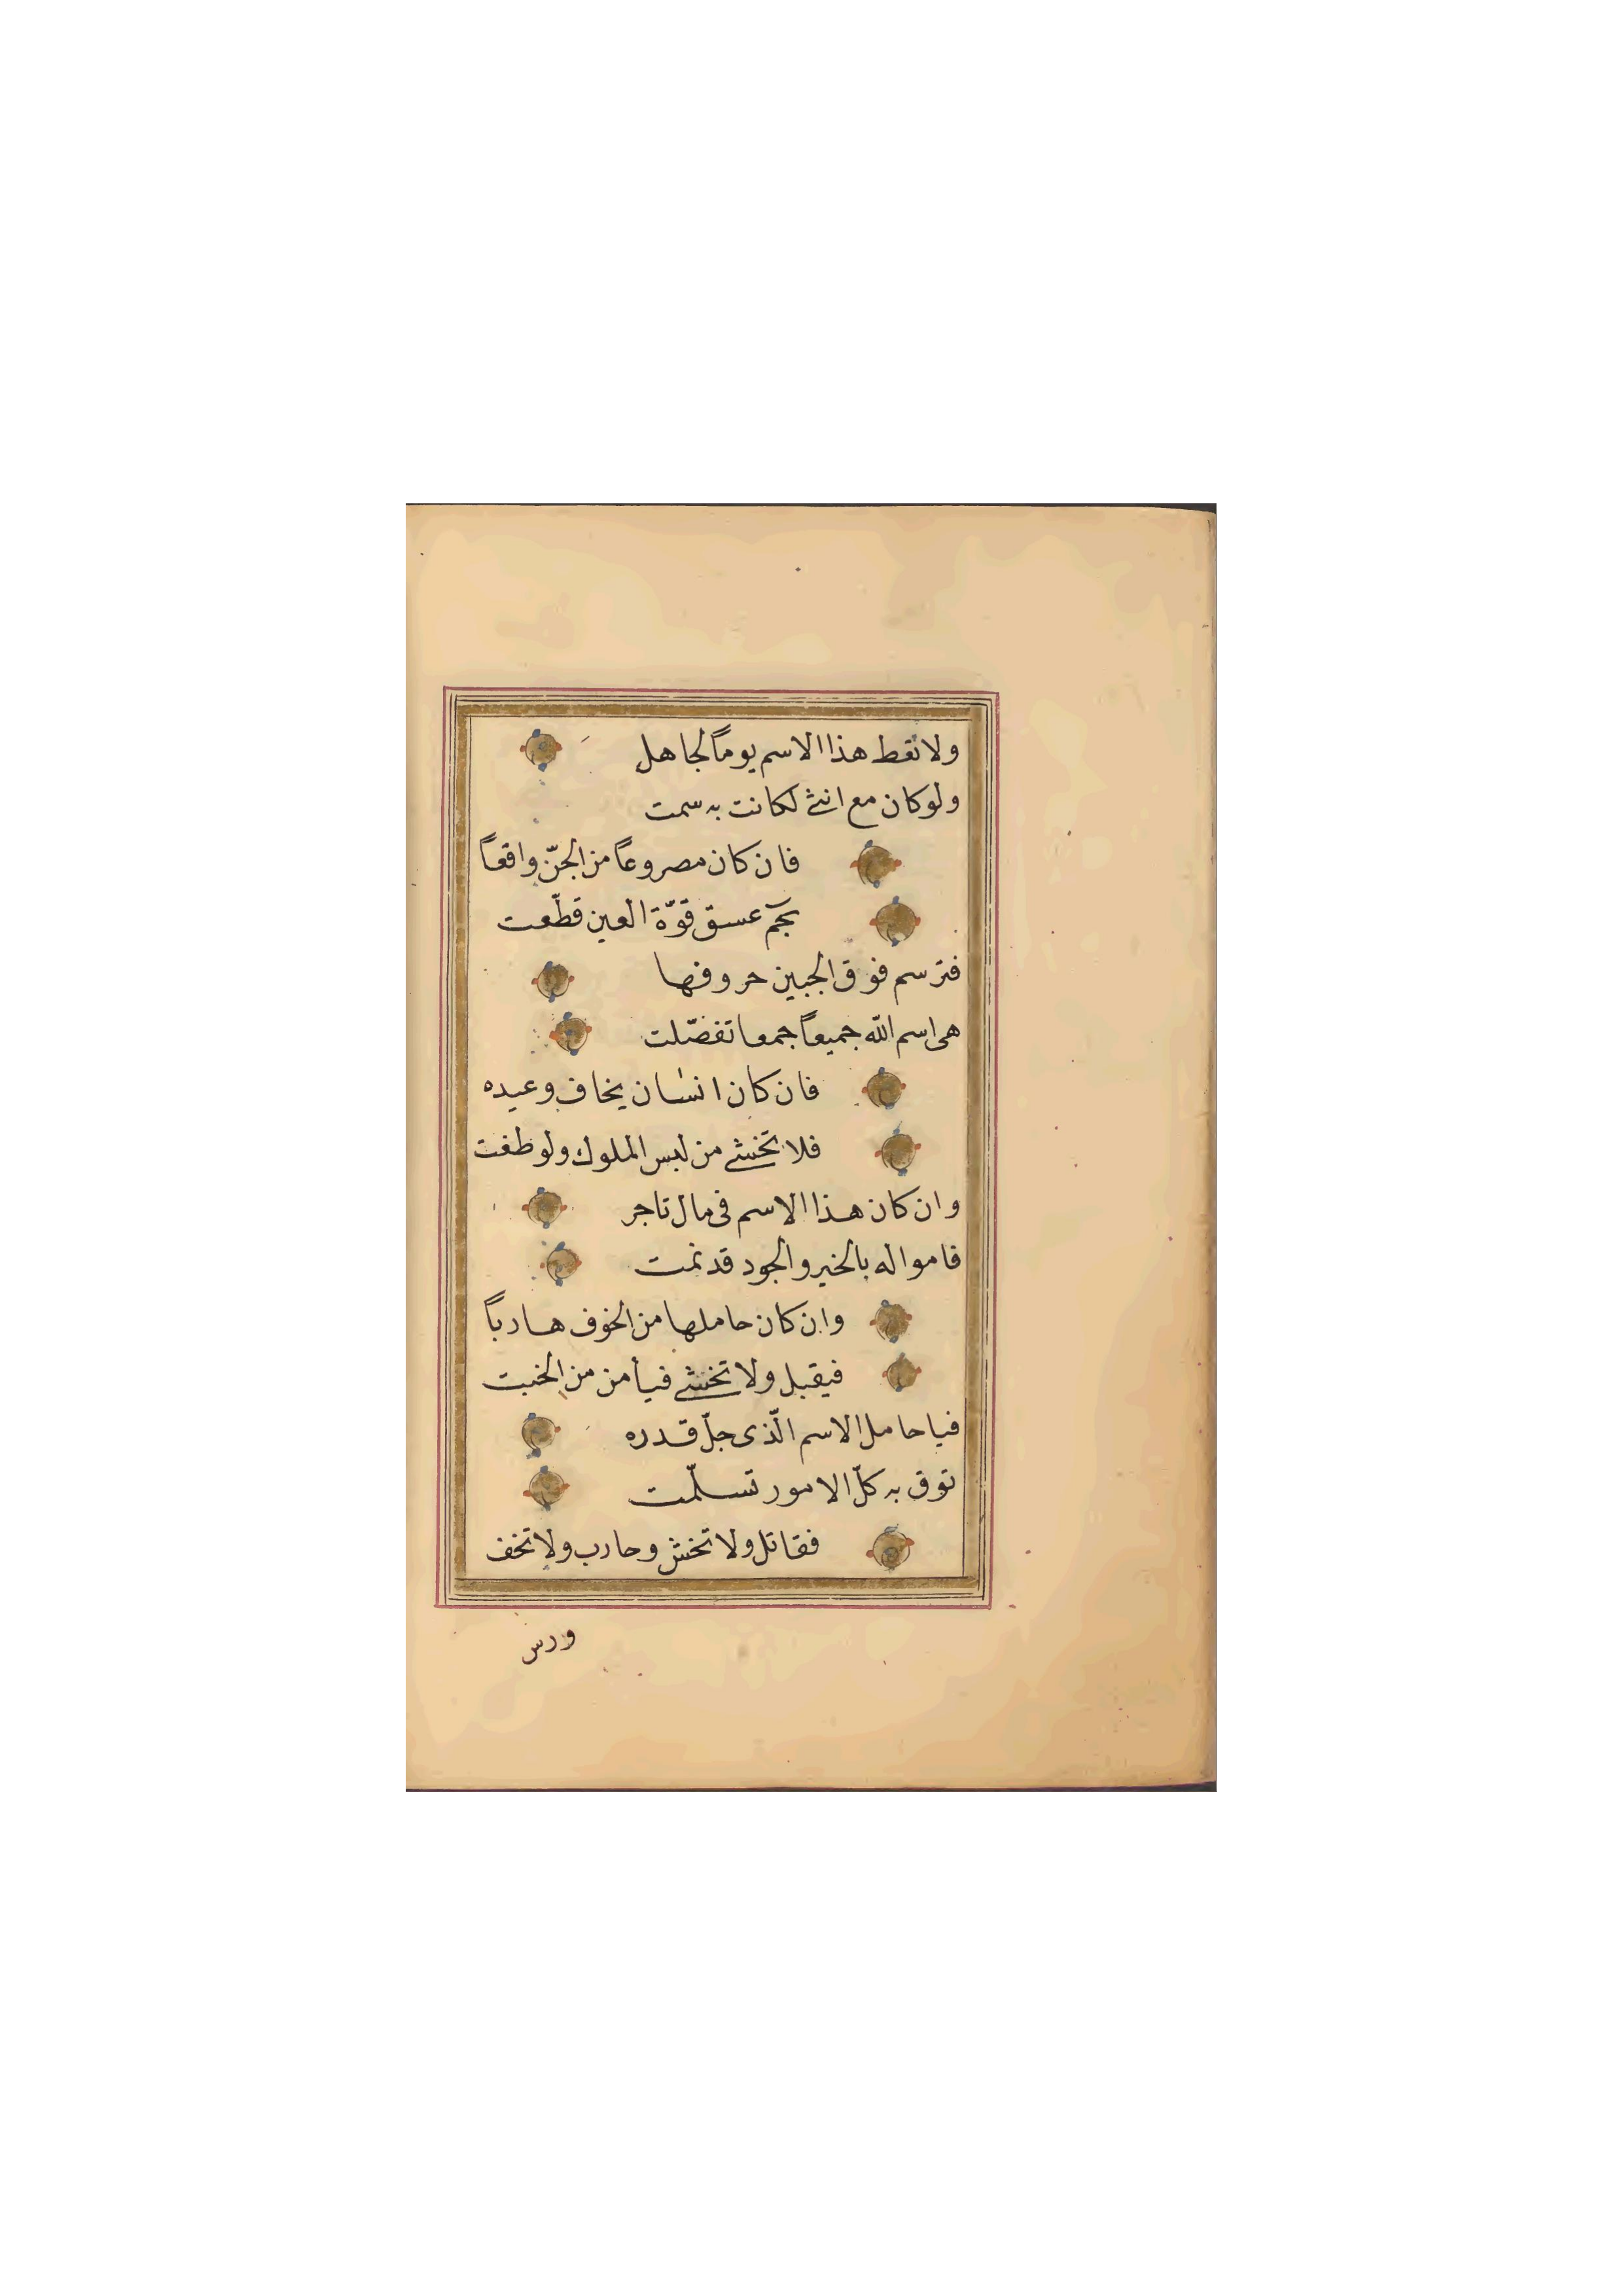 ولا تعط هذا الاسم يوماً لجاهل
ولو كان مع انثى لكانت به سمت
فان كان مصروعاً من الجنّ واقعاً
بحٓم عسق قوّة العين قطّعت
فترسم فوق الجبين حروفها
هى اسم اللّه جميعاً جمعا تفضّلت
فان كان انسان يخاف وعيده
فلا تخشى من لبس الملوك ولو طغت
وان كان هذا الاسم فى مال تاجر
فامواله بالخير والجود قد نمت
وان كان حاملها من الخوف هارباً
فيقبل ولا تخشى فيأمن من الخبت
فيا حامل الاسم الّذى جلّ قدره
توق به كلّ الامور تسلّمت
فقاتل ولا تخش وحارب ولا تخف
ورس